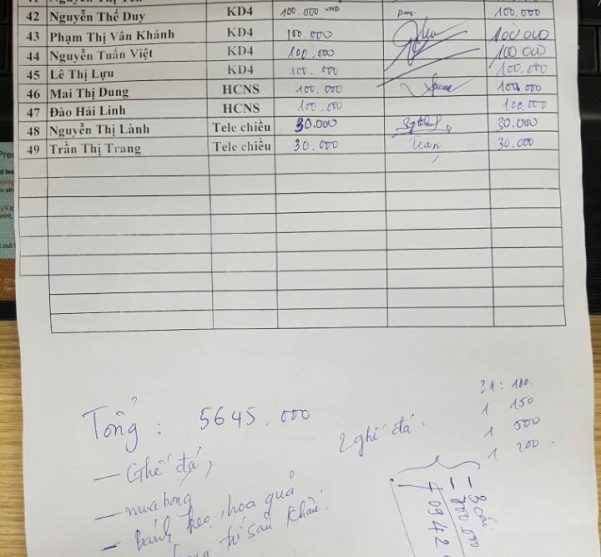 42 Nguyễn Thế Duy KD4 100.000 VND Duy 100.000
43 Phạm Thị Vân Khánh KD4 100.000 100.000
44 Nguyễn Tuấn Việt KD4 100.000 100.000
45 Lê Thị Lựu KD4 100.000 100.000
46 Mai Thị Dung HCNS 100.000 100.000
47 Đào Hải Linh HCNS 100.000 100.000
48 Nguyễn Thị Lành Tele chiều 30.000 30.000
49 Trần Thị Trang Tele chiều 30.000 30.000
31: 100.
1 150
1 500
1 200.
Tổng: 5645.000
2 ghế đá.
- Ghế đá,
- mua bóng
- bánh kẹo, hoa quả
sân khấu.
- 3 cái